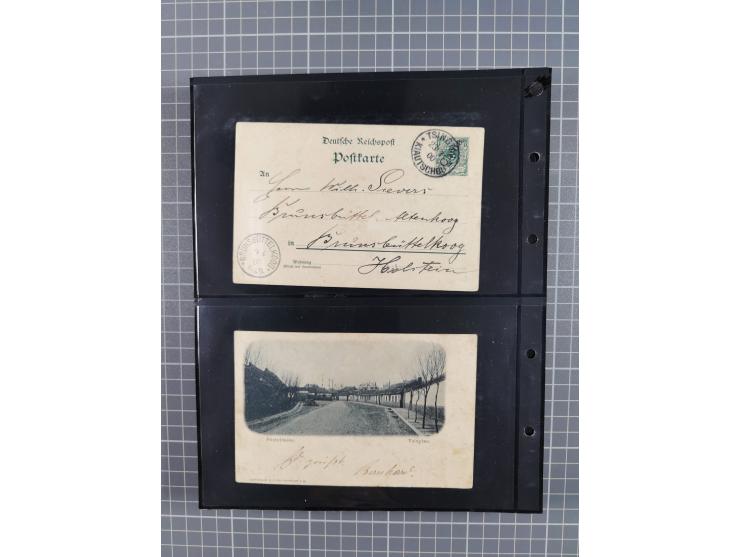 Deutsche Reichspost
Postkarte
TSINGTAU
KIAUTSCHOU
An Herrn Wilh. Sievers
Brunsbüttel-Altenkoog
in Brunsbüttelkoog
Holstein
Wohnung
BRUNSBÜTTELKOOG
Tsingtau.
gegrüßt Bernhard.